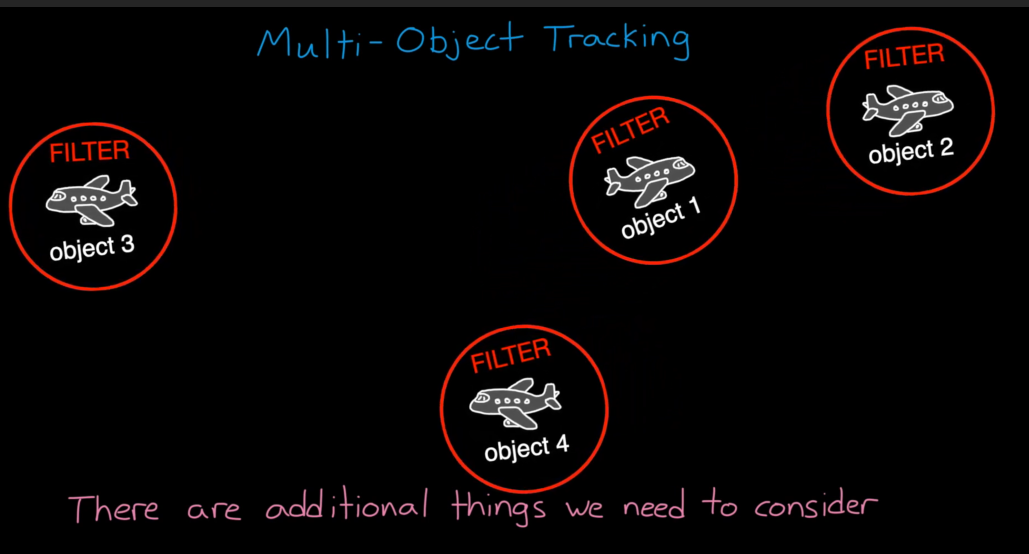 Multi-Object Tracking
FILTER
object 3
FILTER
object 1
FILTER
object 2
FILTER
object 4
There are additional things we need to consider